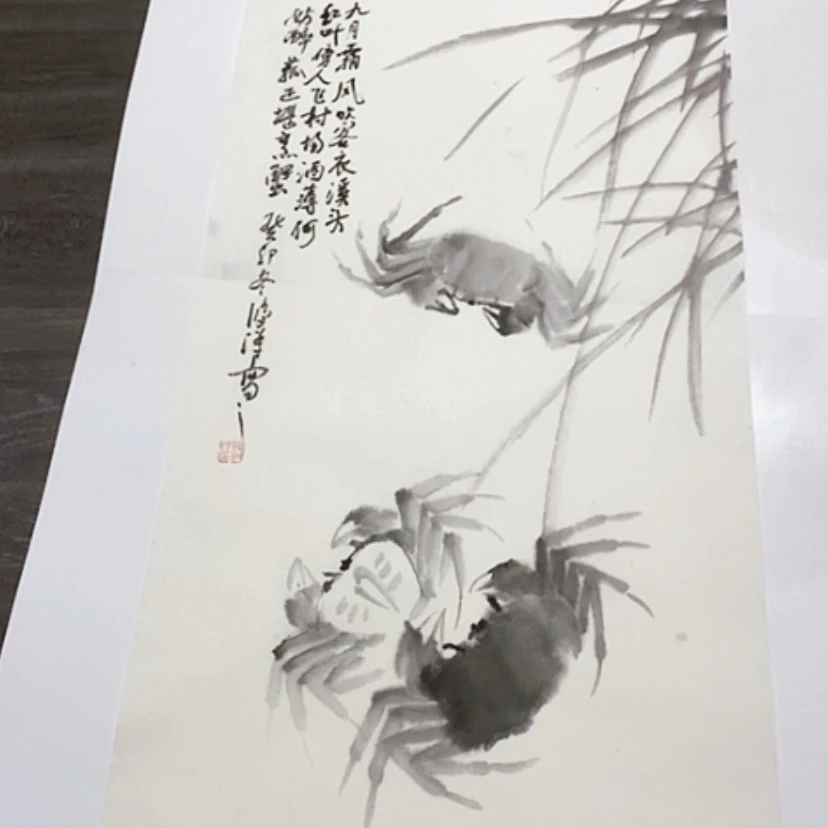 九月霜风吹客衣溪头
红叶傍人飞村场酒薄何
妨醉菰正堪烹蟹 癸卯冬
写之